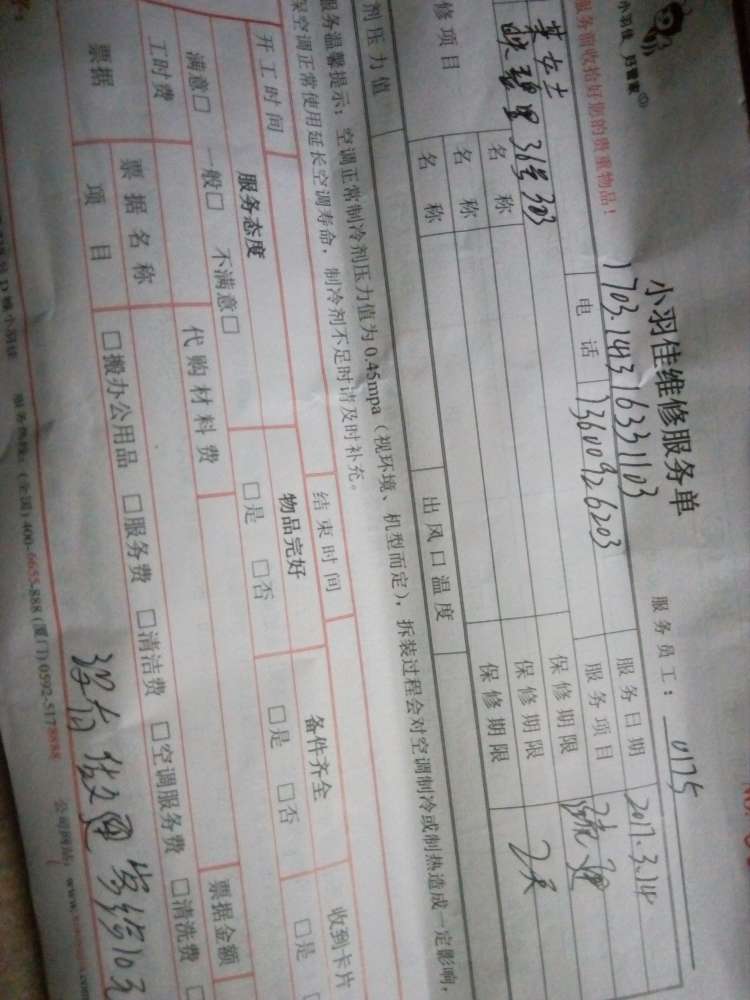 小羽佳 好管家
服务前收拾好您的贵重物品！
小羽佳维修服务单
服务员工：0175
1703.143 16331103
服务日期 2017.3.14
电话 13600926203
服务项目 疏通
女士
36号303
修项目
名称
保修期限 2天
名称
保修期限
名称
保修期限
剂压力值
出风口温度
服务温馨提示：空调正常制冷剂压力值为0.45mpa（视环境、机型而定），拆装过程会对空调制冷或制热造成一定影响，
保空调正常使用延长空调寿命，制冷剂不足时请及时补充。
开工时间
结束时间
服务态度
物品完好
备件齐全
收到卡片
满意□ 一般□ 不满意□
□是 □否
□是 □否
□是
工时费
代购材料费
票据名称
票据金额
票据
项目
□搬办公用品 □服务费 □清洁费 □空调服务费 □清洗费
D幢小羽佳
服务热线：（全国）400-6655-888（厦门）0592-5178888
公司网站：www.